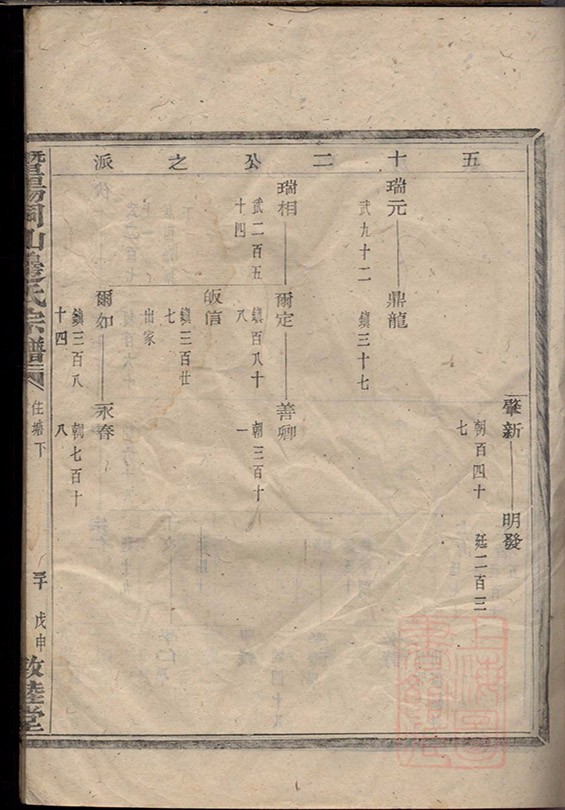 五十二公之派
肇新
明發
朝百四十七
廷二百三
瑞元
鼎龍
武九十二
鎮三十七
瑞相
爾定
善卿
武二百五十四
鎮百八十八
朝三百十一
皈信
鎮三百廿七
出家
爾如
永春
鎮三百八十四
朝七百十八
暨陽同山邊氏宗譜
住塘下
戊申
敦睦堂